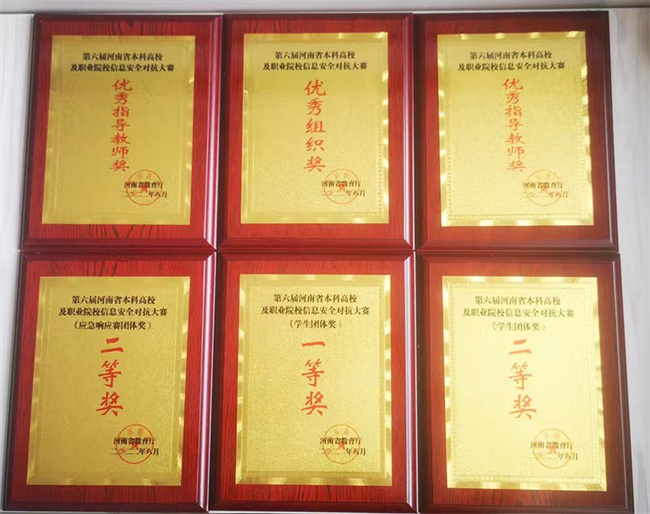 第六届河南省本科高校
及职业院校信息安全对抗大赛
优秀指导教师奖
河南省教育厅
二〇二二年八月
第六届河南省本科高校
及职业院校信息安全对抗大赛
优秀组织奖
河南省教育厅
二〇二二年八月
第六届河南省本科高校
及职业院校信息安全对抗大赛
优秀指导教师奖
河南省教育厅
二〇二二年八月
第六届河南省本科高校
及职业院校信息安全对抗大赛
（应急响应赛团体奖）
二等奖
河南省教育厅
二〇二二年八月
第六届河南省本科高校
及职业院校信息安全对抗大赛
（学生团体奖）
一等奖
河南省教育厅
二〇二二年八月
第六届河南省本科高校
及职业院校信息安全对抗大赛
（学生团体奖）
二等奖
河南省教育厅
二〇二二年八月